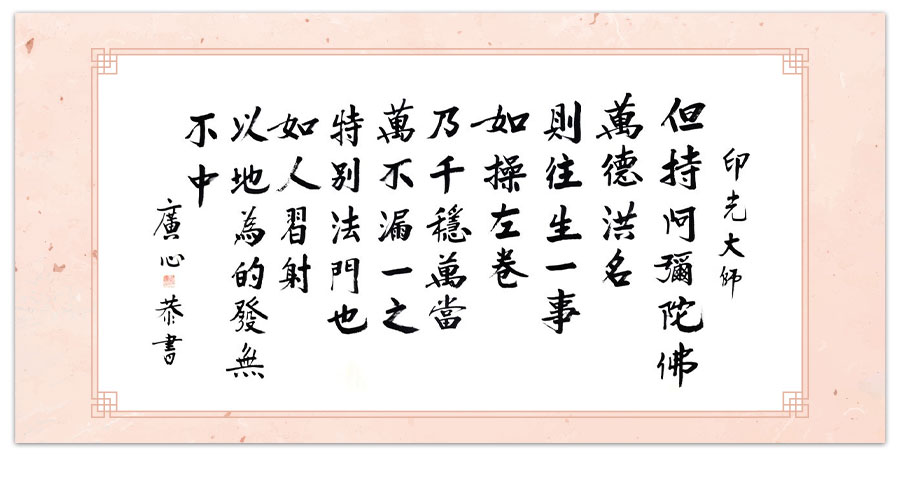 印光大師
但持阿彌陀佛
萬德洪名
則往生一事
如操左卷
乃千穩萬當
萬不漏一之
特別法門也
如人習射
以地為的發無
不中
廣心 恭書